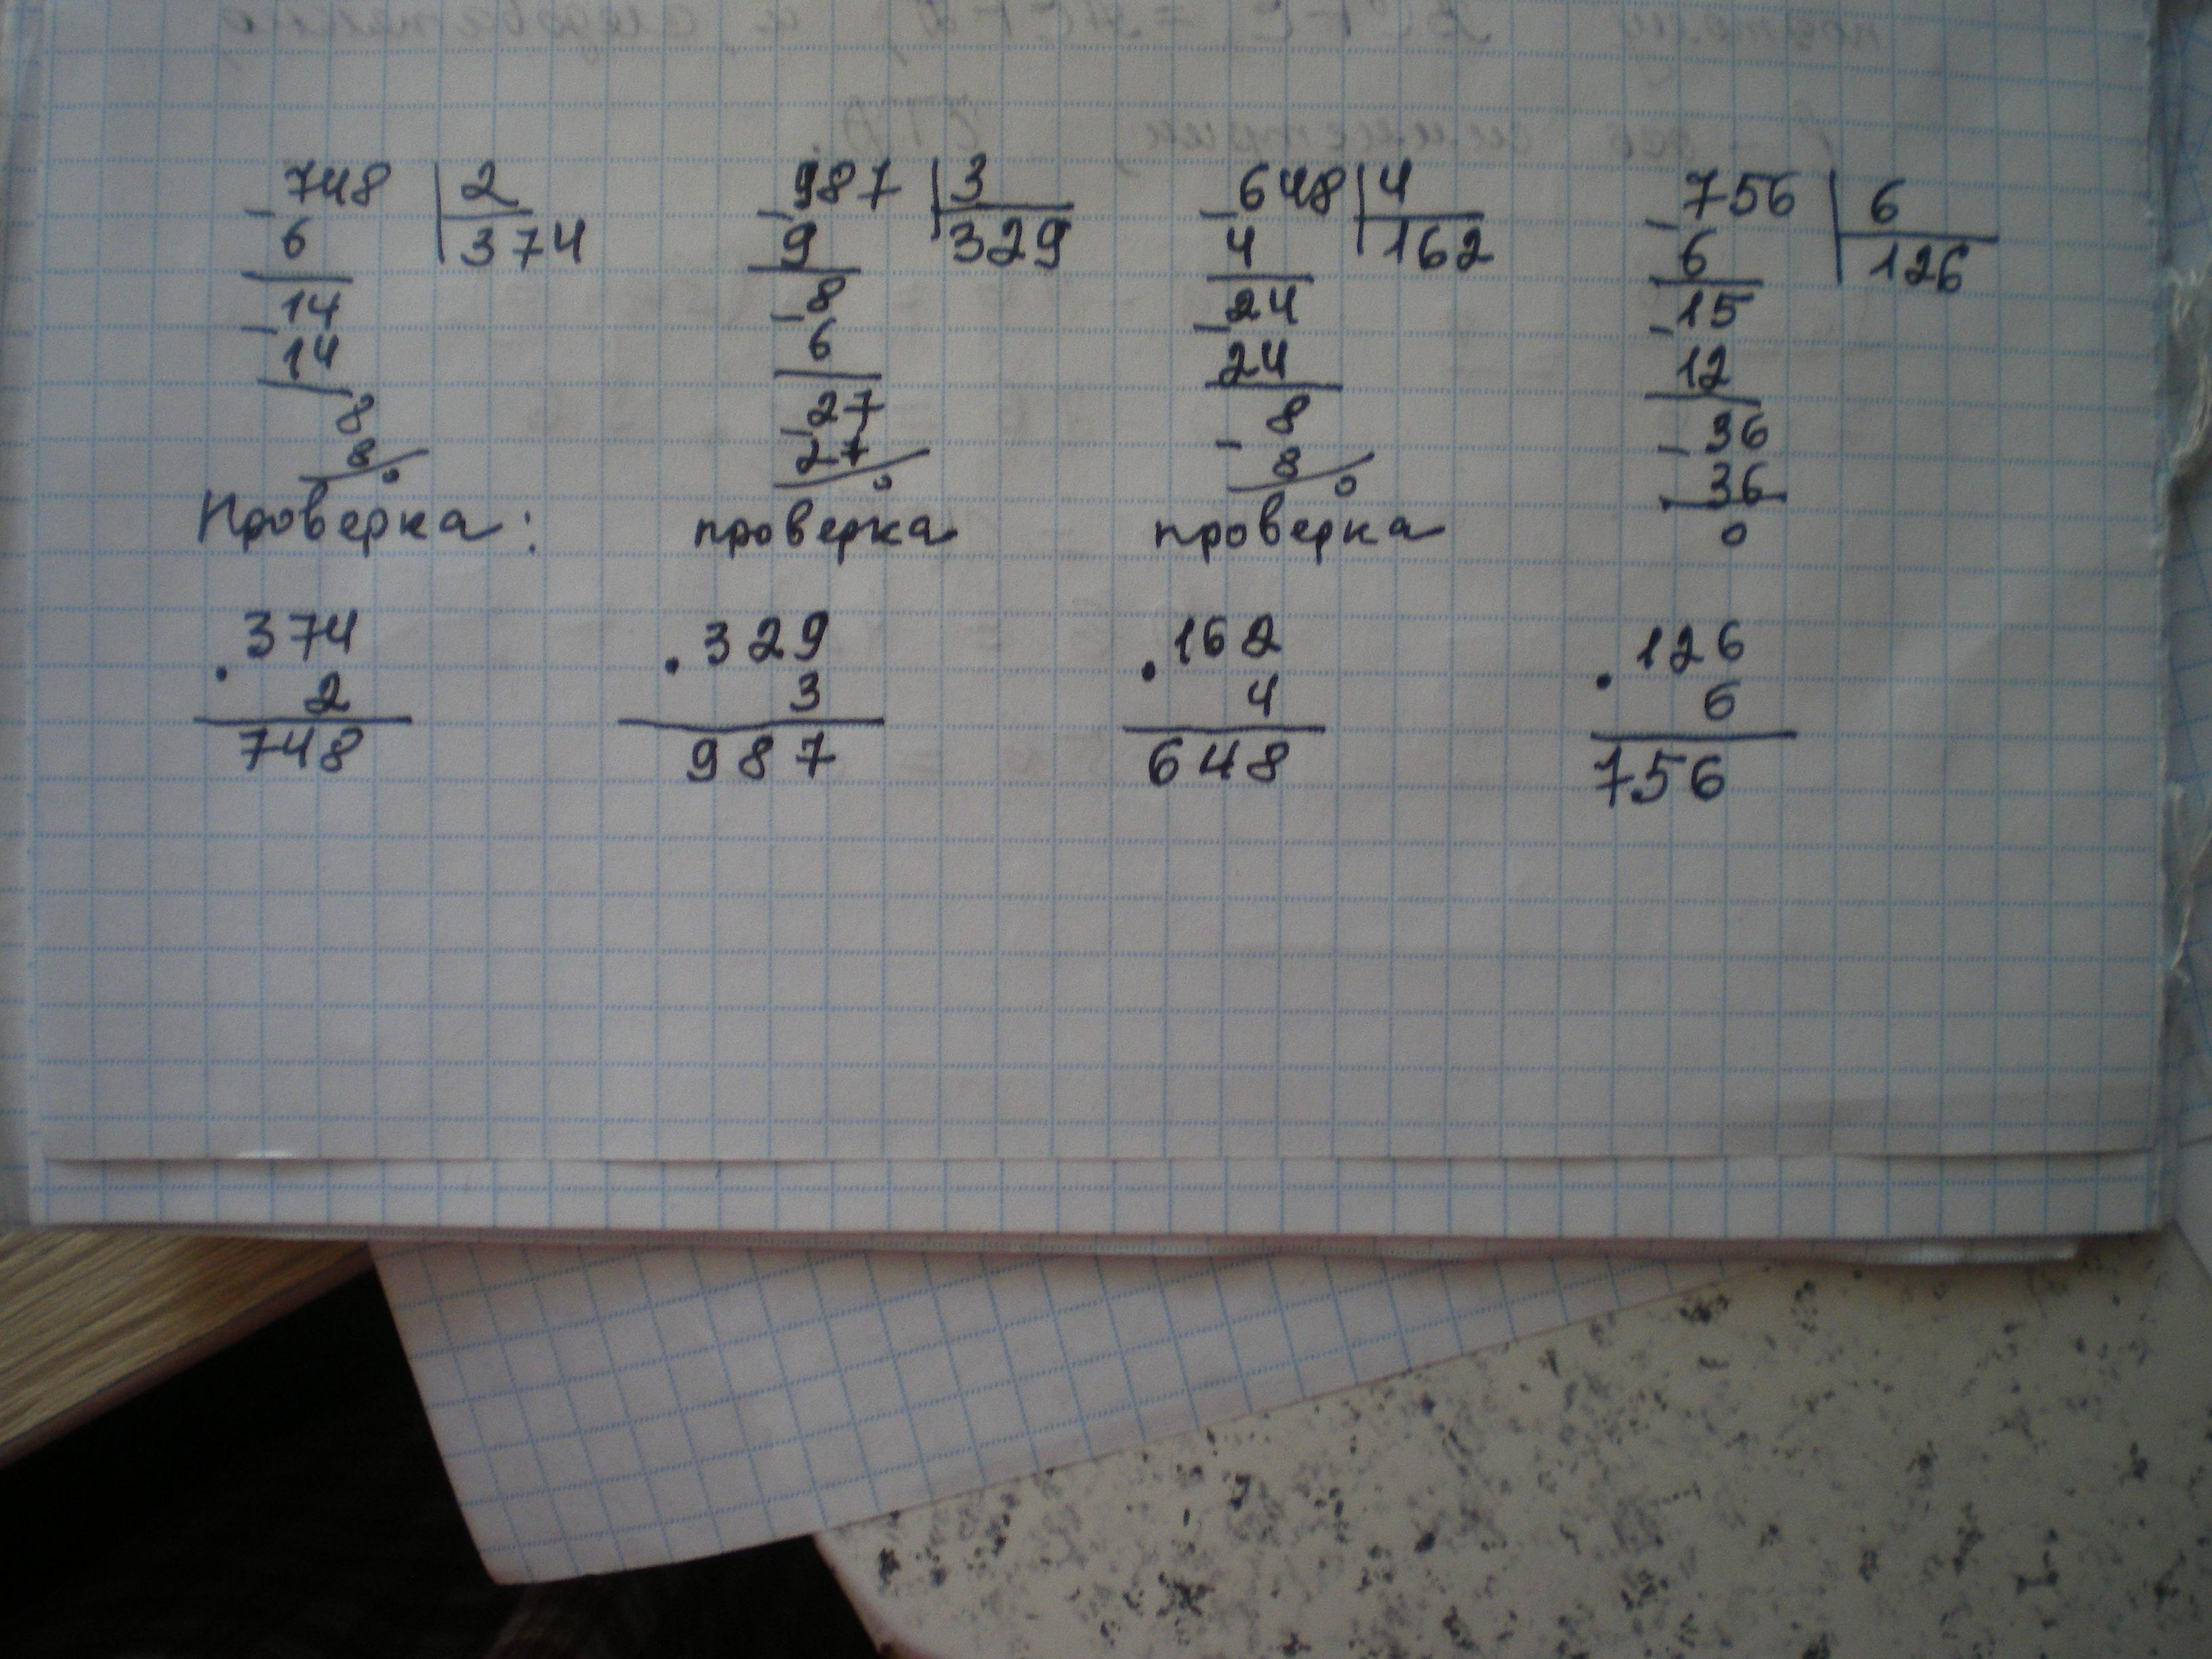 748 | 2
- 6 | 374
14
- 14
8
8
0
Проверка:
374
· 2
748
987 | 3
- 9 | 329
- 8
6
- 27
27
0
проверка
329
· 3
987
648 | 4
- 4 | 162
- 24
24
- 8
8
0
проверка
162
· 4
648
756 | 6
- 6 | 126
- 15
12
- 36
36
0
126
· 6
756